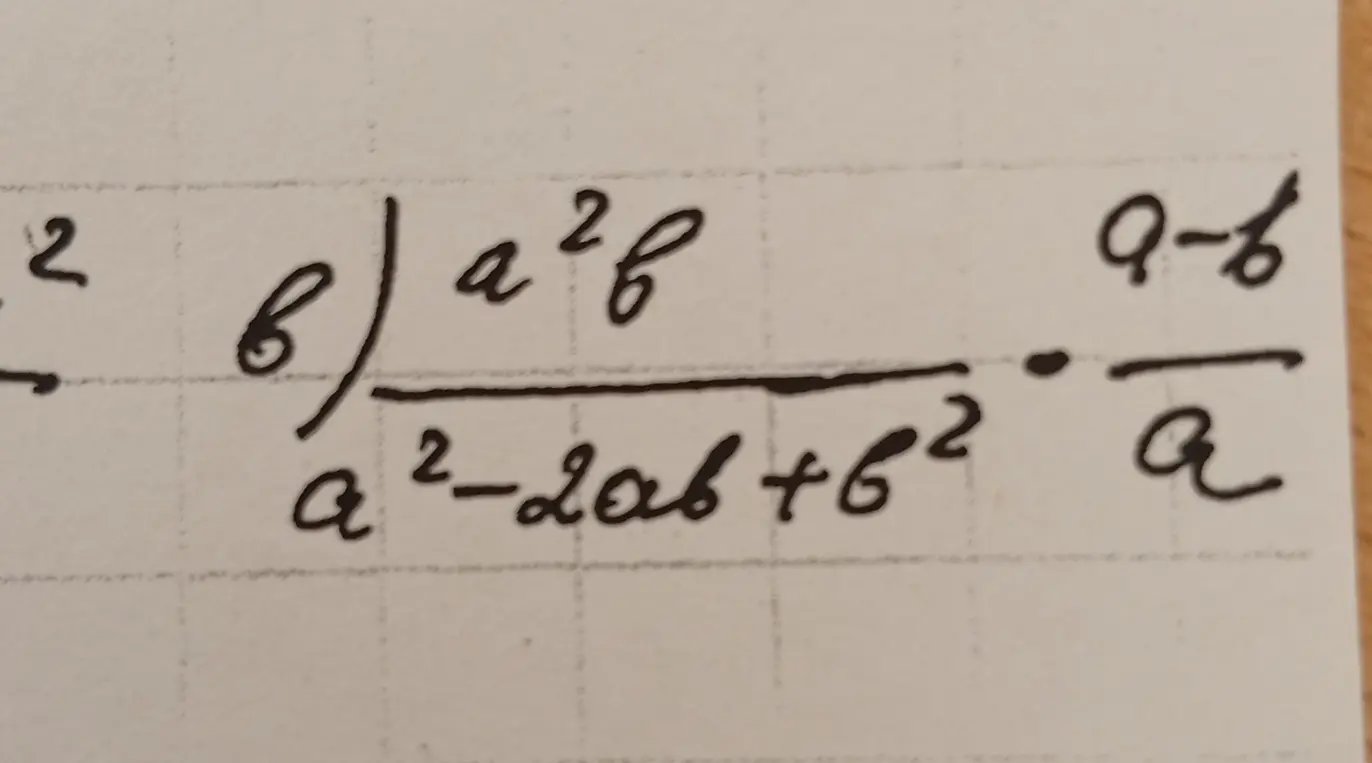 2 в) a²b / a² - 2ab + b² · a - b / a